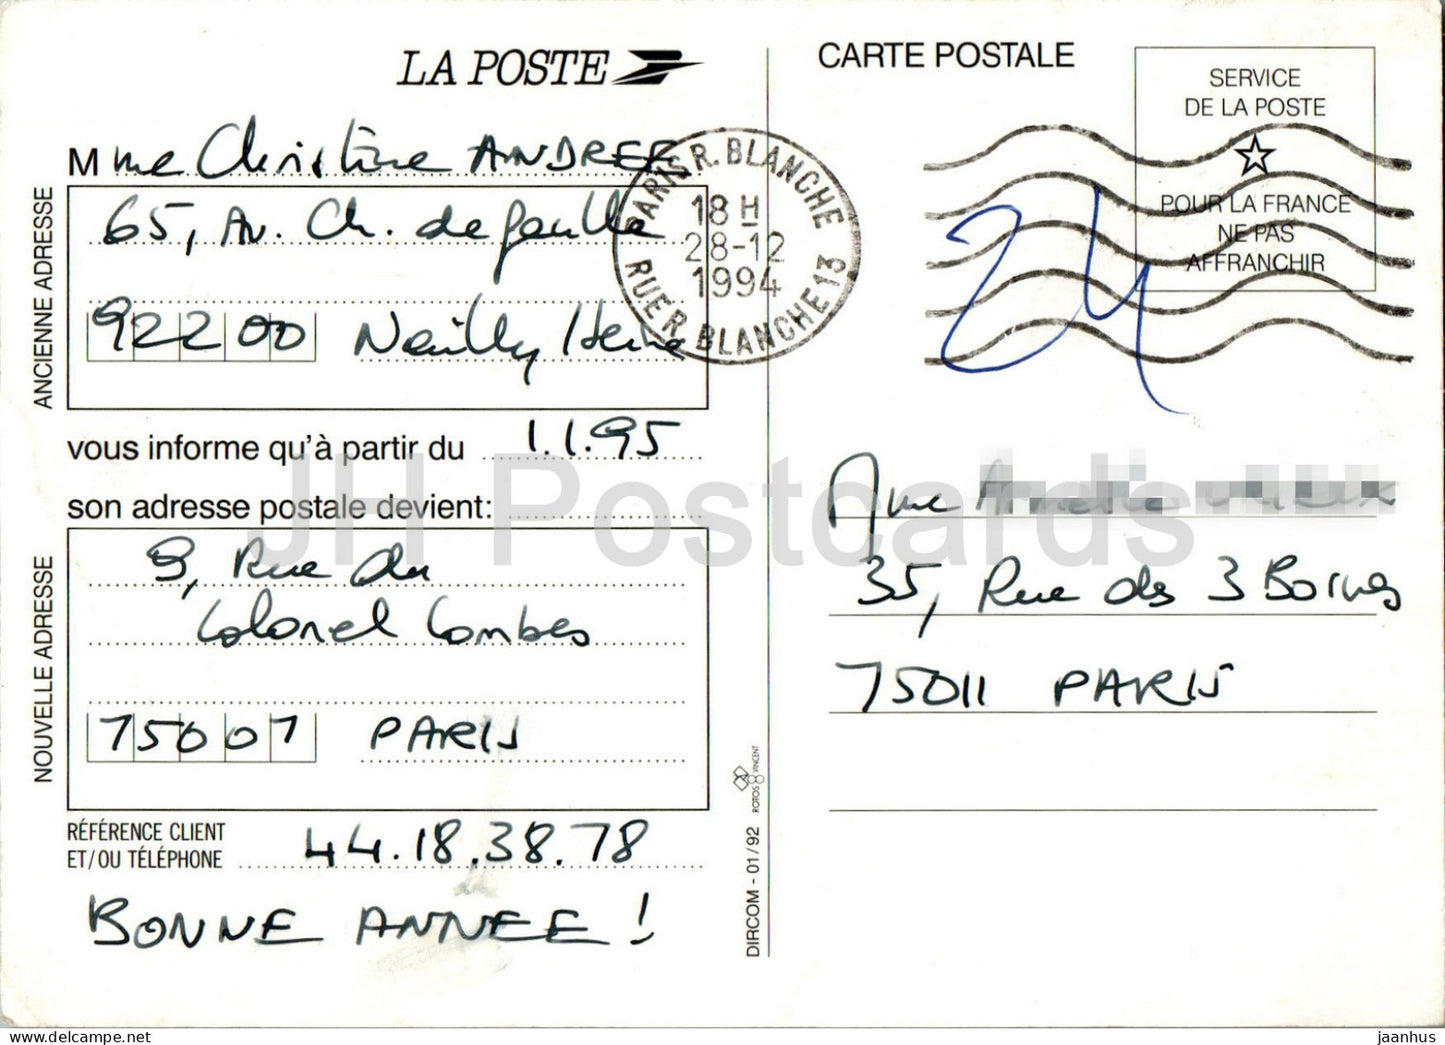 LA POSTE
Mme Christine ANDREE
ANCIENNE ADRESSE
65, Av. Ch. de Gaulle
92200 Neuilly /Seine
vous informe qu'à partir du 1.1.95
son adresse postale devient:
NOUVELLE ADRESSE
9, Rue du
Colonel Combes
75007 PARIS
RÉFÉRENCE CLIENT
ET/OU TÉLÉPHONE 44.18.38.78
BONNE ANNEE !
PARIS R. BLANCHE
18 H
28-12
1994
RUE R. BLANCHE 13
DIRCOM - 01/92
ROTOS VINCENT
CARTE POSTALE
SERVICE
DE LA POSTE
POUR LA FRANCE
NE PAS
AFFRANCHIR
Mme
35, Rue des 3 Bornes
75011 PARIS
JH Postcards
jaanhus @ delcampe.net